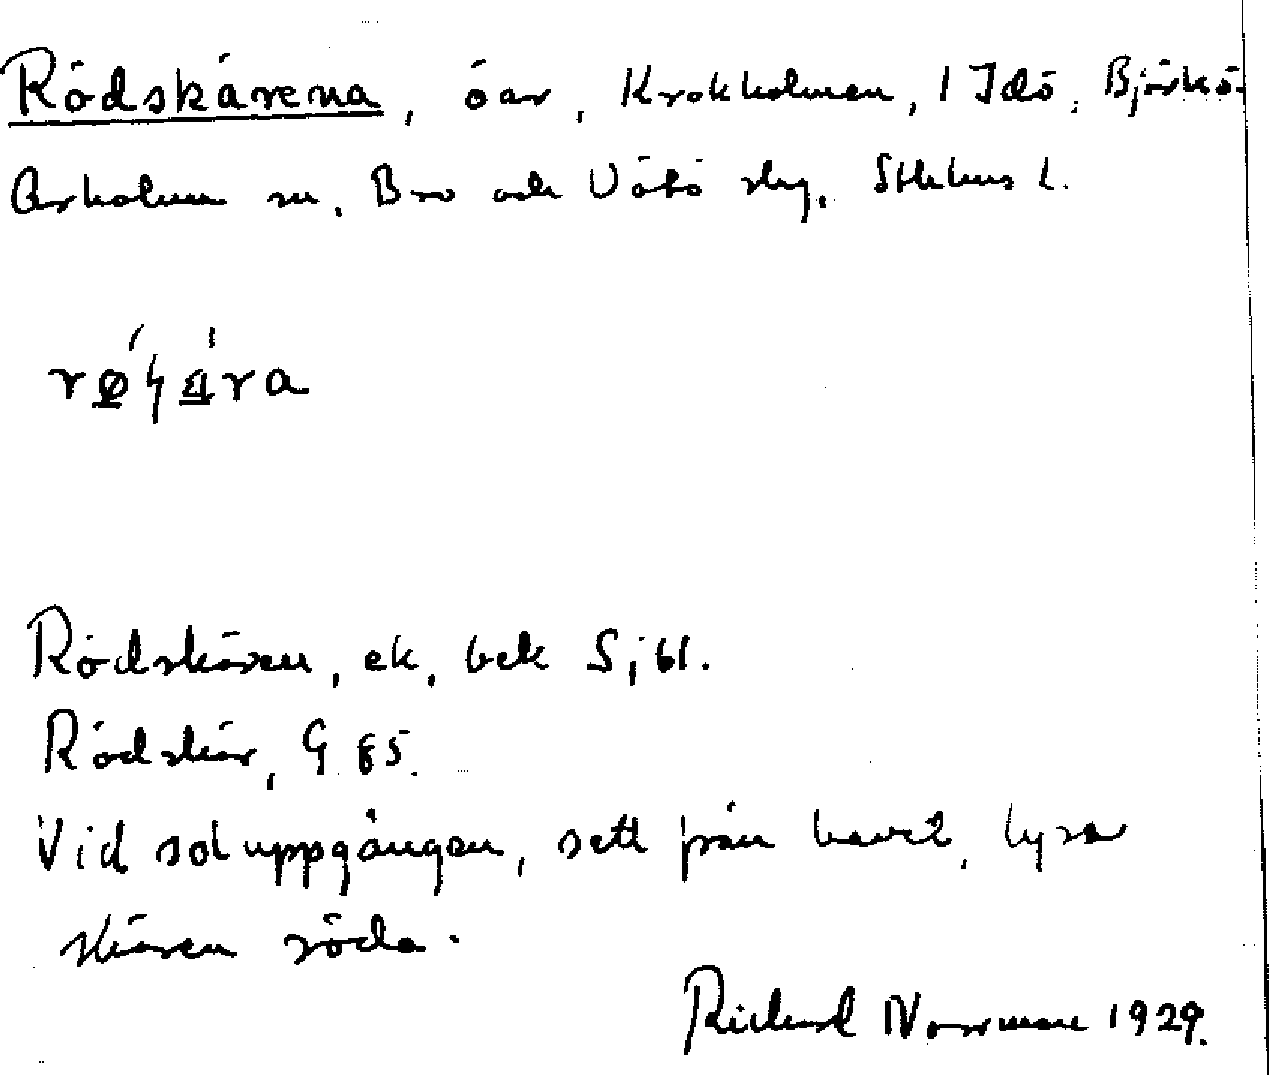 Rödskärena, öar, Krokholmen, 1 Idö, Björkö-
Arholma sn, Bro och Vätö skg, Sthlms l.
Rödskären, ek, bek Sjbl.
Rödskär, G 85.
Vid soluppgången, sett från havet, lysa
skären röda.
Richard Norrman 1929.